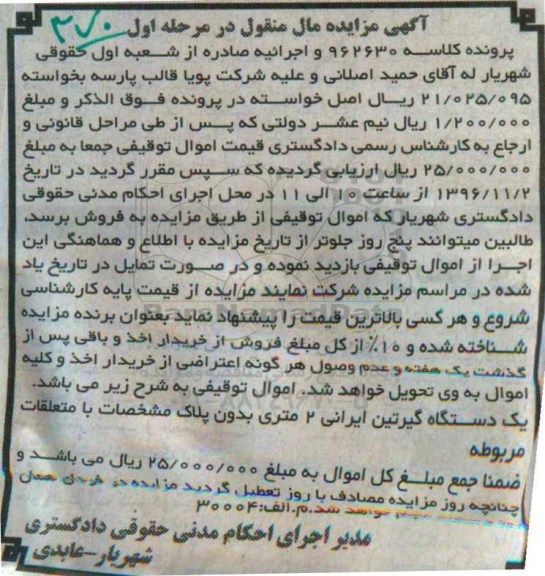 آگهی مزایده مال منقول در مرحله اول
پرونده کلاسه ۹۶۲۶۳۰ و اجرائیه صادره از شعبه اول حقوقی
شهریار له آقای حمید اصلانی و علیه شرکت پویا قالب پارسه بخواسته
۲۱/۰۲۵/۰۹۵ ریال اصل خواسته در پرونده فوق الذکر و مبلغ
۱/۲۰۰/۰۰۰ ریال نیم عشر دولتی که پس از طی مراحل قانونی و
ارجاع به کارشناس رسمی دادگستری قیمت اموال توقیفی جمعا به مبلغ
۲۵/۰۰۰/۰۰۰ ریال ارزیابی گردیده که سپس مقرر گردید در تاریخ
۱۳۹۶/۱۱/۲ از ساعت ۱۰ الی ۱۱ در محل اجرای احکام مدنی حقوقی
دادگستری شهریار که اموال توقیفی از طریق مزایده به فروش برسد،
طالبین میتوانند پنج روز جلوتر از تاریخ مزایده با اطلاع و هماهنگی این
اجرا از اموال توقیفی بازدید نموده و در صورت تمایل در تاریخ یاد
شده در مراسم مزایده شرکت نمایند مزایده از قیمت پایه کارشناسی
شروع و هر کسی بالاترین قیمت را پیشنهاد نماید بعنوان برنده مزایده
شناخته شده و ۱۰٪ از کل مبلغ فروش از خریدار اخذ و باقی پس از
گذشت یک هفته و عدم وصول هر گونه اعتراضی از خریدار اخذ و کلیه
اموال به وی تحویل خواهد شد. اموال توقیفی به شرح زیر می باشد.
یک دستگاه گیرتین ایرانی ۲ متری بدون پلاک مشخصات با متعلقات
مربوطه
ضمنا جمع مبلغ کل اموال به مبلغ ۲۵/۰۰۰/۰۰۰ ریال می باشد و
چنانچه روز مزایده مصادف با روز تعطیل گردید مزایده در فردای همان
خواهد شد.م.الف:۳۰۰۰۴
مدیر اجرای احکام مدنی حقوقی دادگستری
شهریار-عابدی